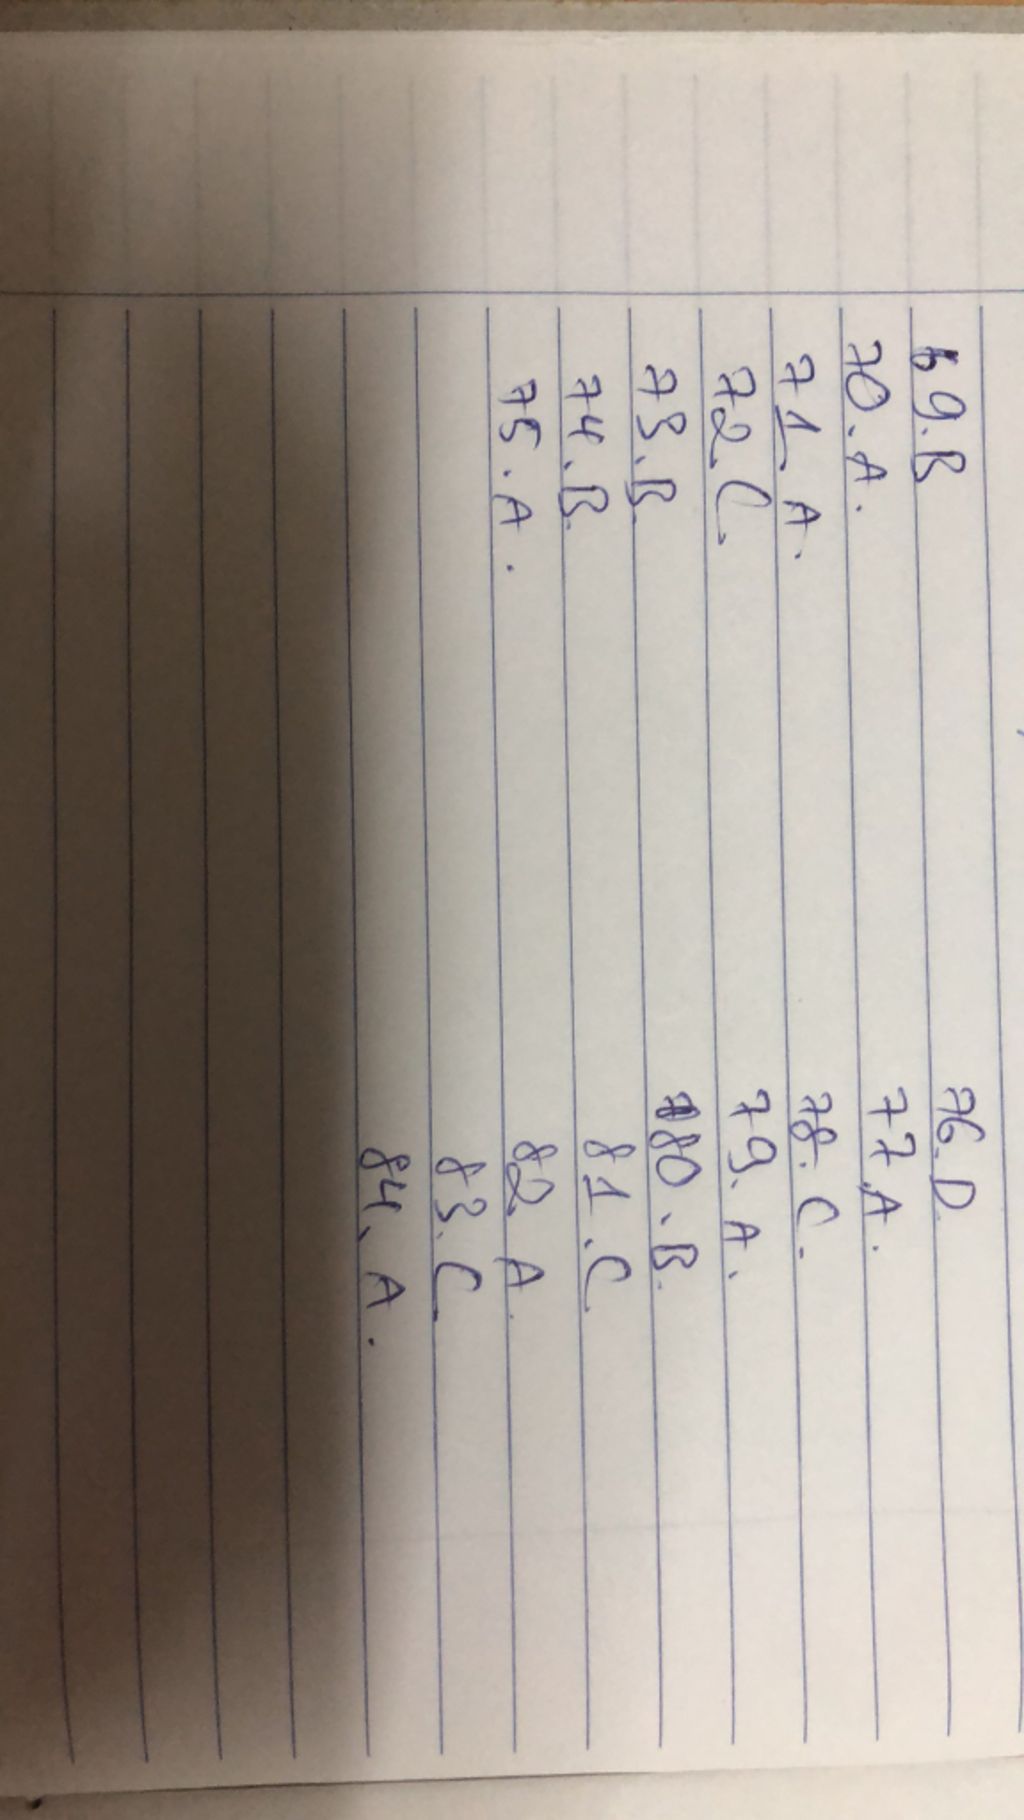 69.B
70.A.
71.A.
72.C.
73.B.
74.B.
75.A.
76.D.
77.A.
78.C.
79.A.
80.B.
81.C
82.A.
83.C.
84.A.